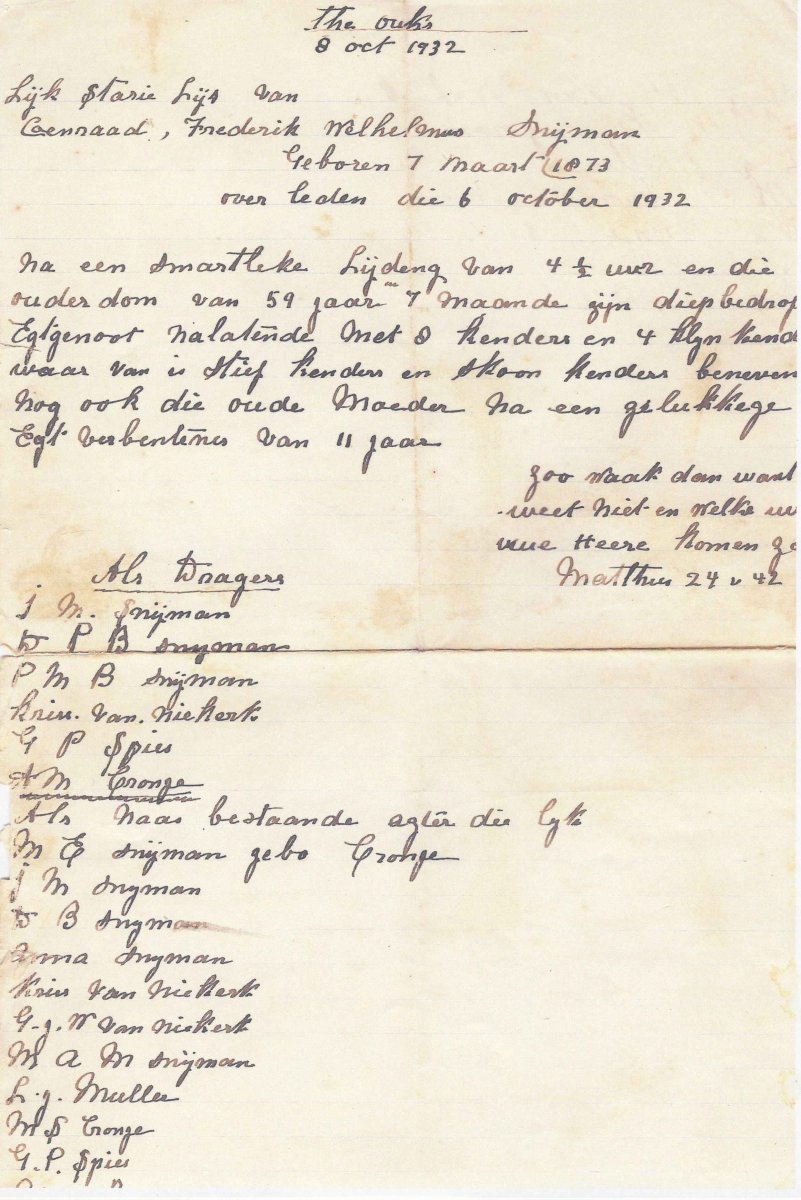 The ouks
8 oct 1932
Lijk Starie Lijs van
Coenraad, Frederik Welhelmus Snijman
Geboren 7 Maart 1873
over leden die 6 october 1932
Na een smartleke Lijdeng van 4 ½ uur en die
ouderdom van 59 jaar en 7 Maande zijn diepbedrof
Egtgenoot Nalatende Met 8 kenders en 4 klyn kend
waar van is Stief kenders en Skoon kenders beneven
Nog ook die oude Moeder Na een gelukkege
Egt verbentenes van 11 jaar
Zoo waak dan want
weet Niet en welke uu
uwe Heere komen za
Matthus 24 v 42
Als Dragers
J M. Snijman
D P B Snyman
P M B Snijman
Kriss. van. Niekerk
G P Spies
A M Cronge
Als Naas bestaande agter die lyk
M E Snijman gebo Cronge
J M Snyman
D B Snyman
Anna Snyman
Kriss van Niekerk
G. J. W van Niekerk
M A M Snijman
L. J. Muller
M S Cronge
G. P. Spies